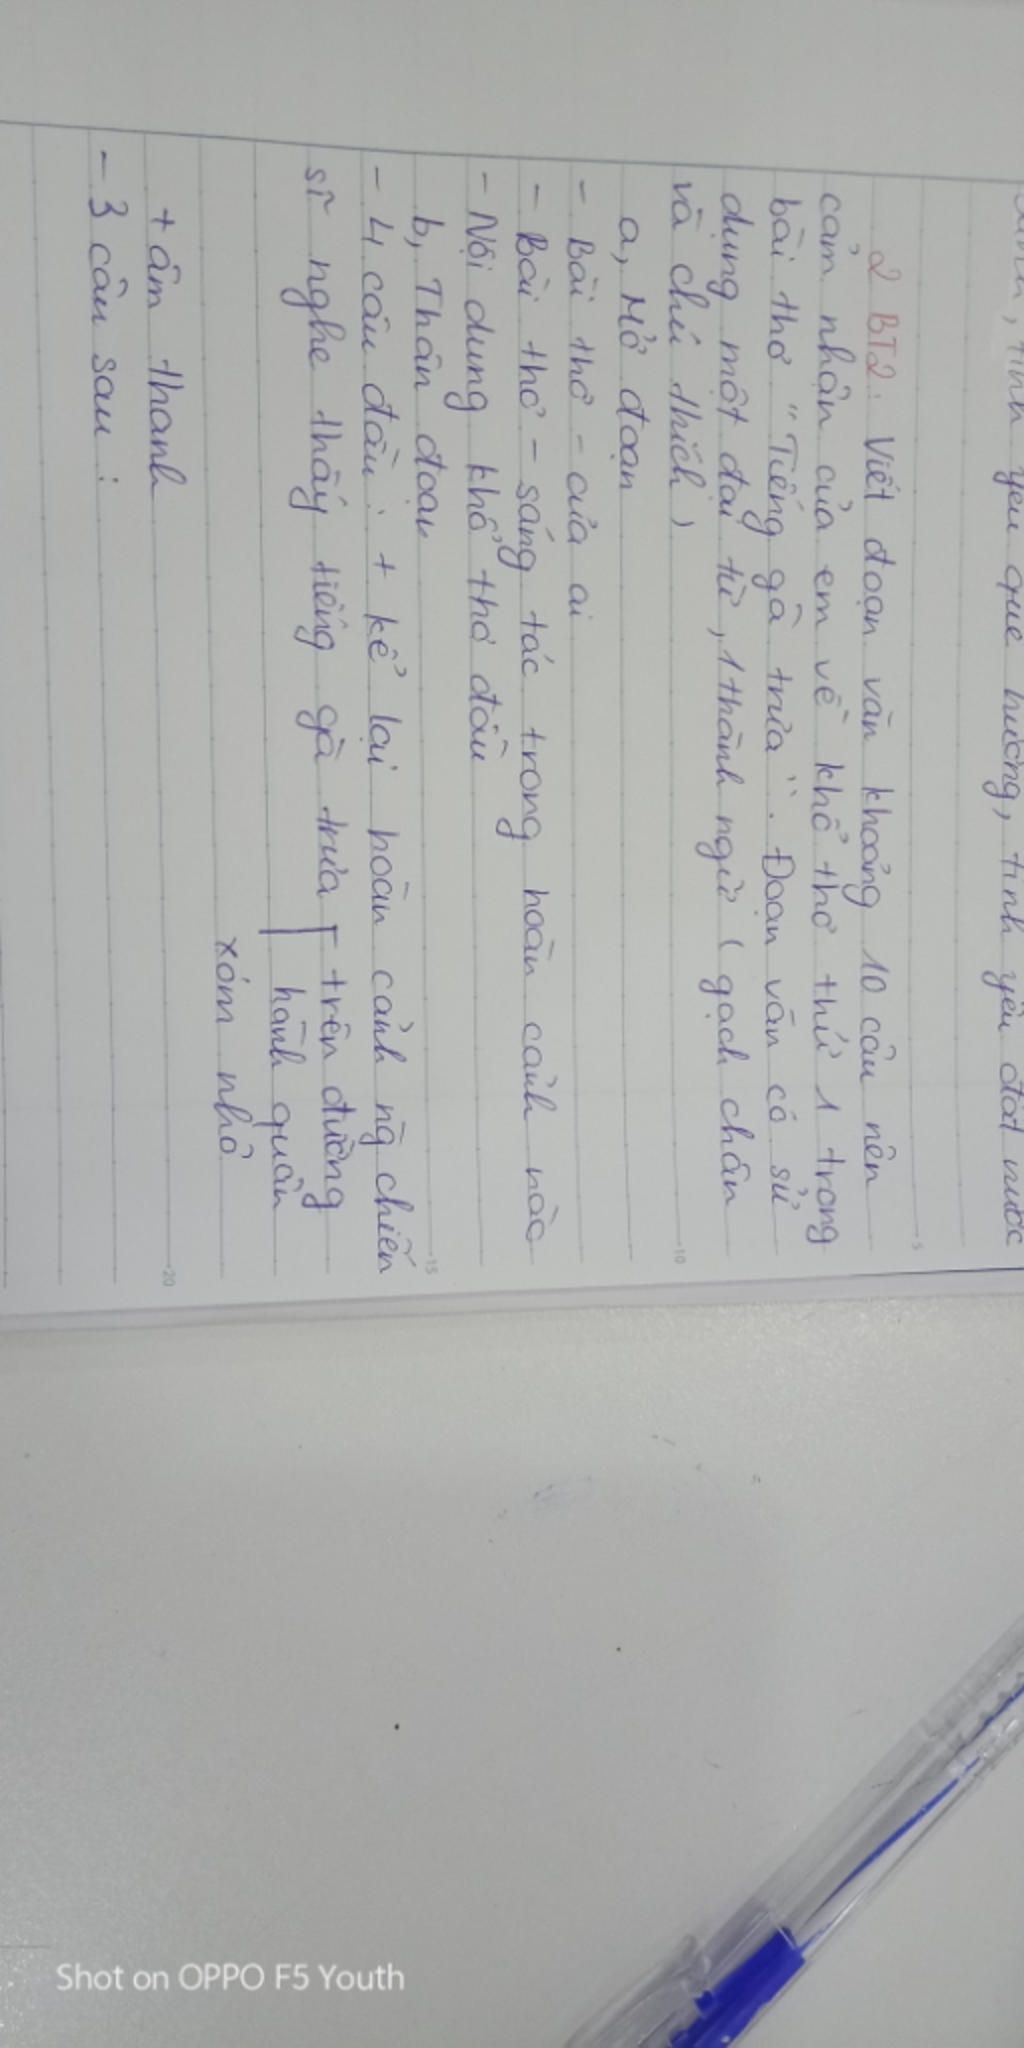 yêu quê hương, tình yêu đất nước
2 BT2. Viết đoạn văn khoảng 10 câu nên
cảm nhận của em về khổ thơ thứ 1 trong
bài thơ "Tiếng gà trưa". Đoạn văn có sử
dụng một đại từ, 1 thành ngữ (gạch chân
và chú thích)
a, Mở đoạn
- Bài thơ - của ai
- Bài thơ - sáng tác trong hoàn cảnh nào
- Nội dung khổ thơ đầu
b, Thân đoạn
- 4 câu đầu: + kể lại hoàn cảnh ng chiến
sĩ nghe thấy tiếng gà trưa trên đường
hành quân
xóm nhỏ
+ âm thanh
- 3 câu sau:
5
10
15
20
Shot on OPPO F5 Youth